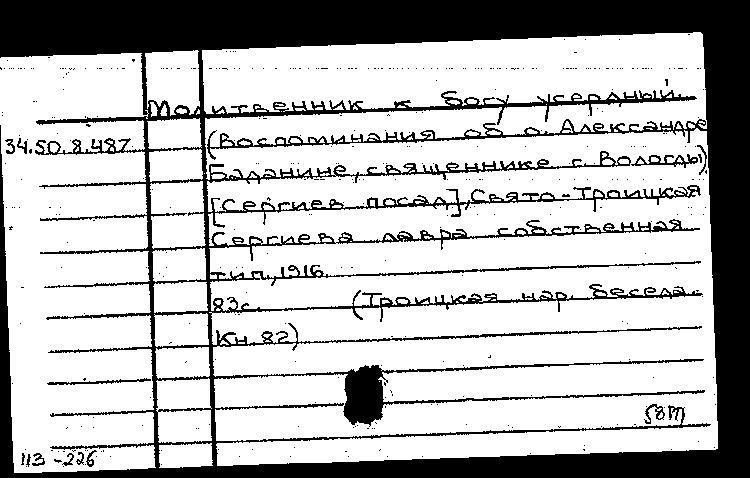 Молитвенник к Богу усердный.
34.50.8.487 (Воспоминания об о. Александре
Баданине, священнике г. Вологды)
[Сергиев посад], Свято-Троицкая
Сергиева лавра собственная
тип., 1916.
83с. (Троицкая нар. беседа.
Кн. 82)
113-226